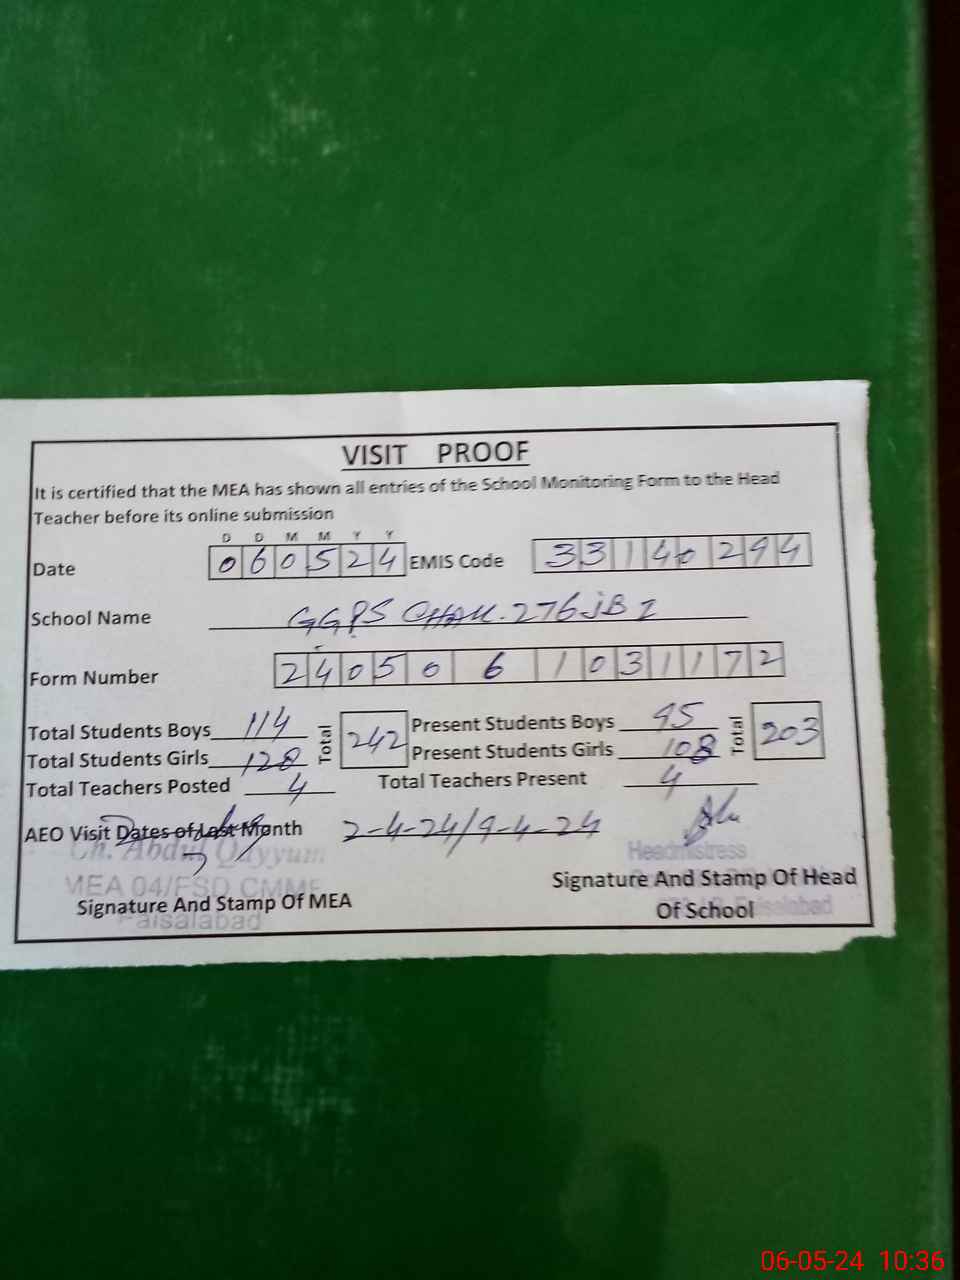 VISIT PROOF
It is certified that the MEA has shown all entries of the School Monitoring Form to the Head
Teacher before its online submission
D D M M Y Y
Date 060524 EMIS Code 33140294
School Name GGPS CHAK. 276 JB I
Form Number 2405061031172
Total Students Boys 114 Total 242 Present Students Boys 95 Total 203
Total Students Girls 128 Present Students Girls 108
Total Teachers Posted 4 Total Teachers Present 4
AEO Visit Dates of Last Month 2-4-24/9-4-24
Ch. Abdul Qayyum Headmistress
MEA 04/FSD CMMF
Signature And Stamp Of MEA Signature And Stamp Of Head
Faisalabad Of School Faisalabad
06-05-24 10:36